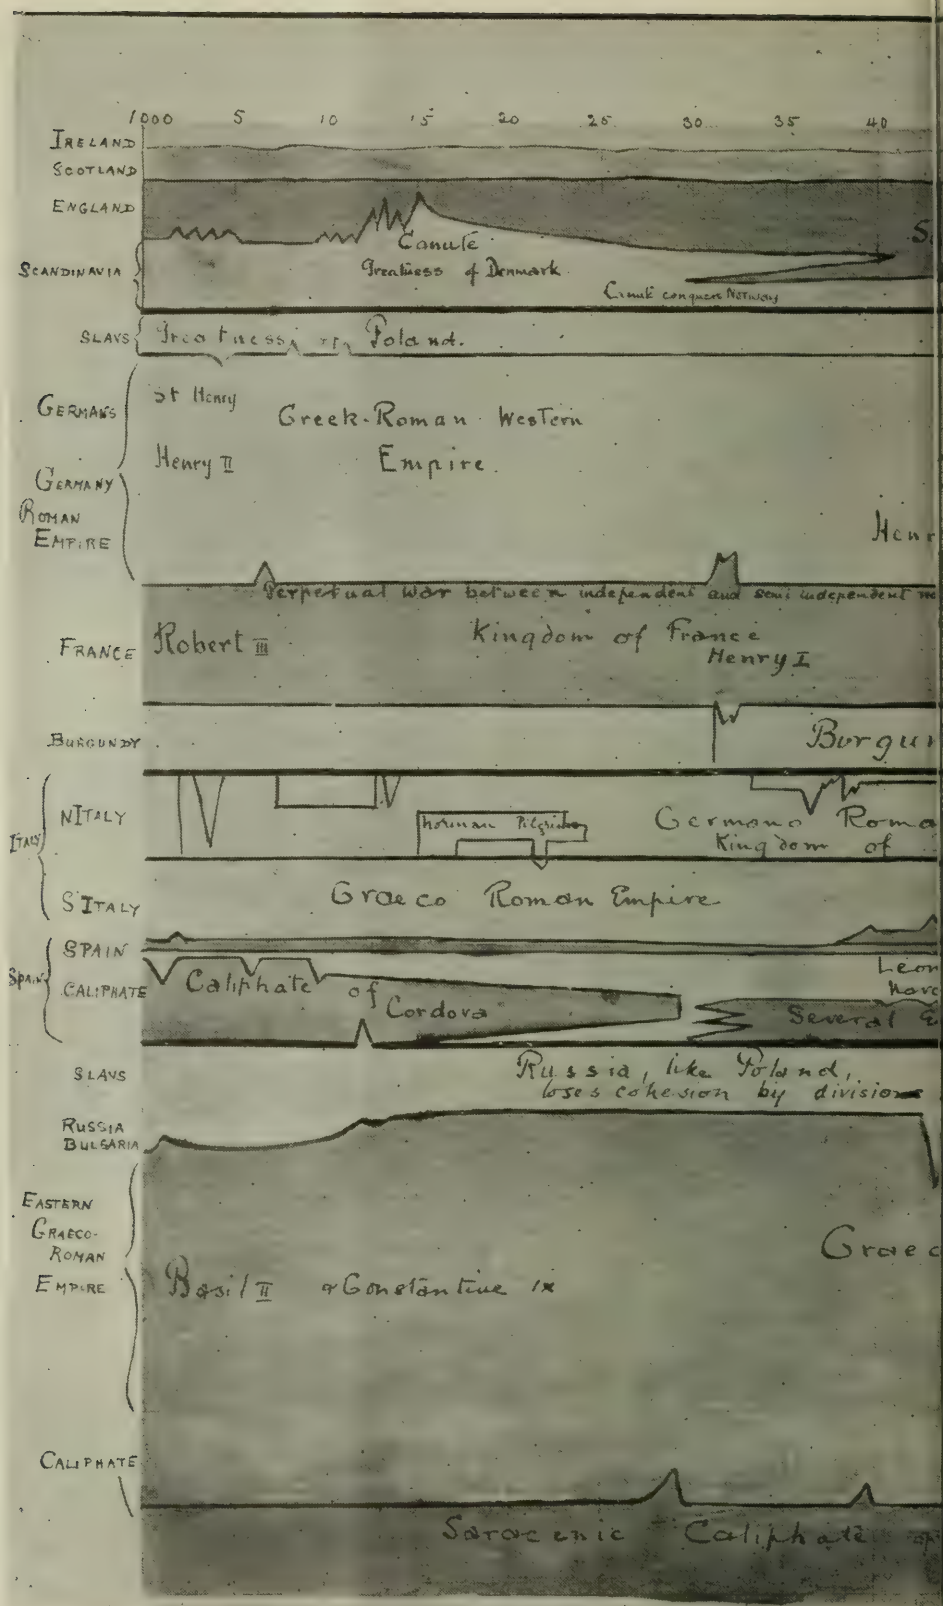 1000 5 10 15 20 25 30 35 40
IRELAND
SCOTLAND
ENGLAND
SCANDINAVIA
Canute
Greatness of Denmark
Canute conquers Norway
SLAVS
Greatness of Poland.
GERMANS
St Henry
Greek-Roman Western
Henry II
Empire.
GERMANY
ROMAN
EMPIRE
Henr
Perpetual war between independent and semi independent
FRANCE
Robert III
Kingdom of France
Henry I
BURGUNDY
Burgun
ITALY
N ITALY
Norman Pilgrims
Germano Roma
Kingdom of
S ITALY
Graeco Roman Empire
SPAIN
SPAIN
CALIPHATE
Caliphate of
Cordova
Leon
Nava
Several E
SLAVS
Russia, like Poland,
loses cohesion by divisions
RUSSIA
BULGARIA
EASTERN
GRAECO-
ROMAN
EMPIRE
Graec
Basil II & Constantine IX
CALIPHATE
Saracenic Caliphate of